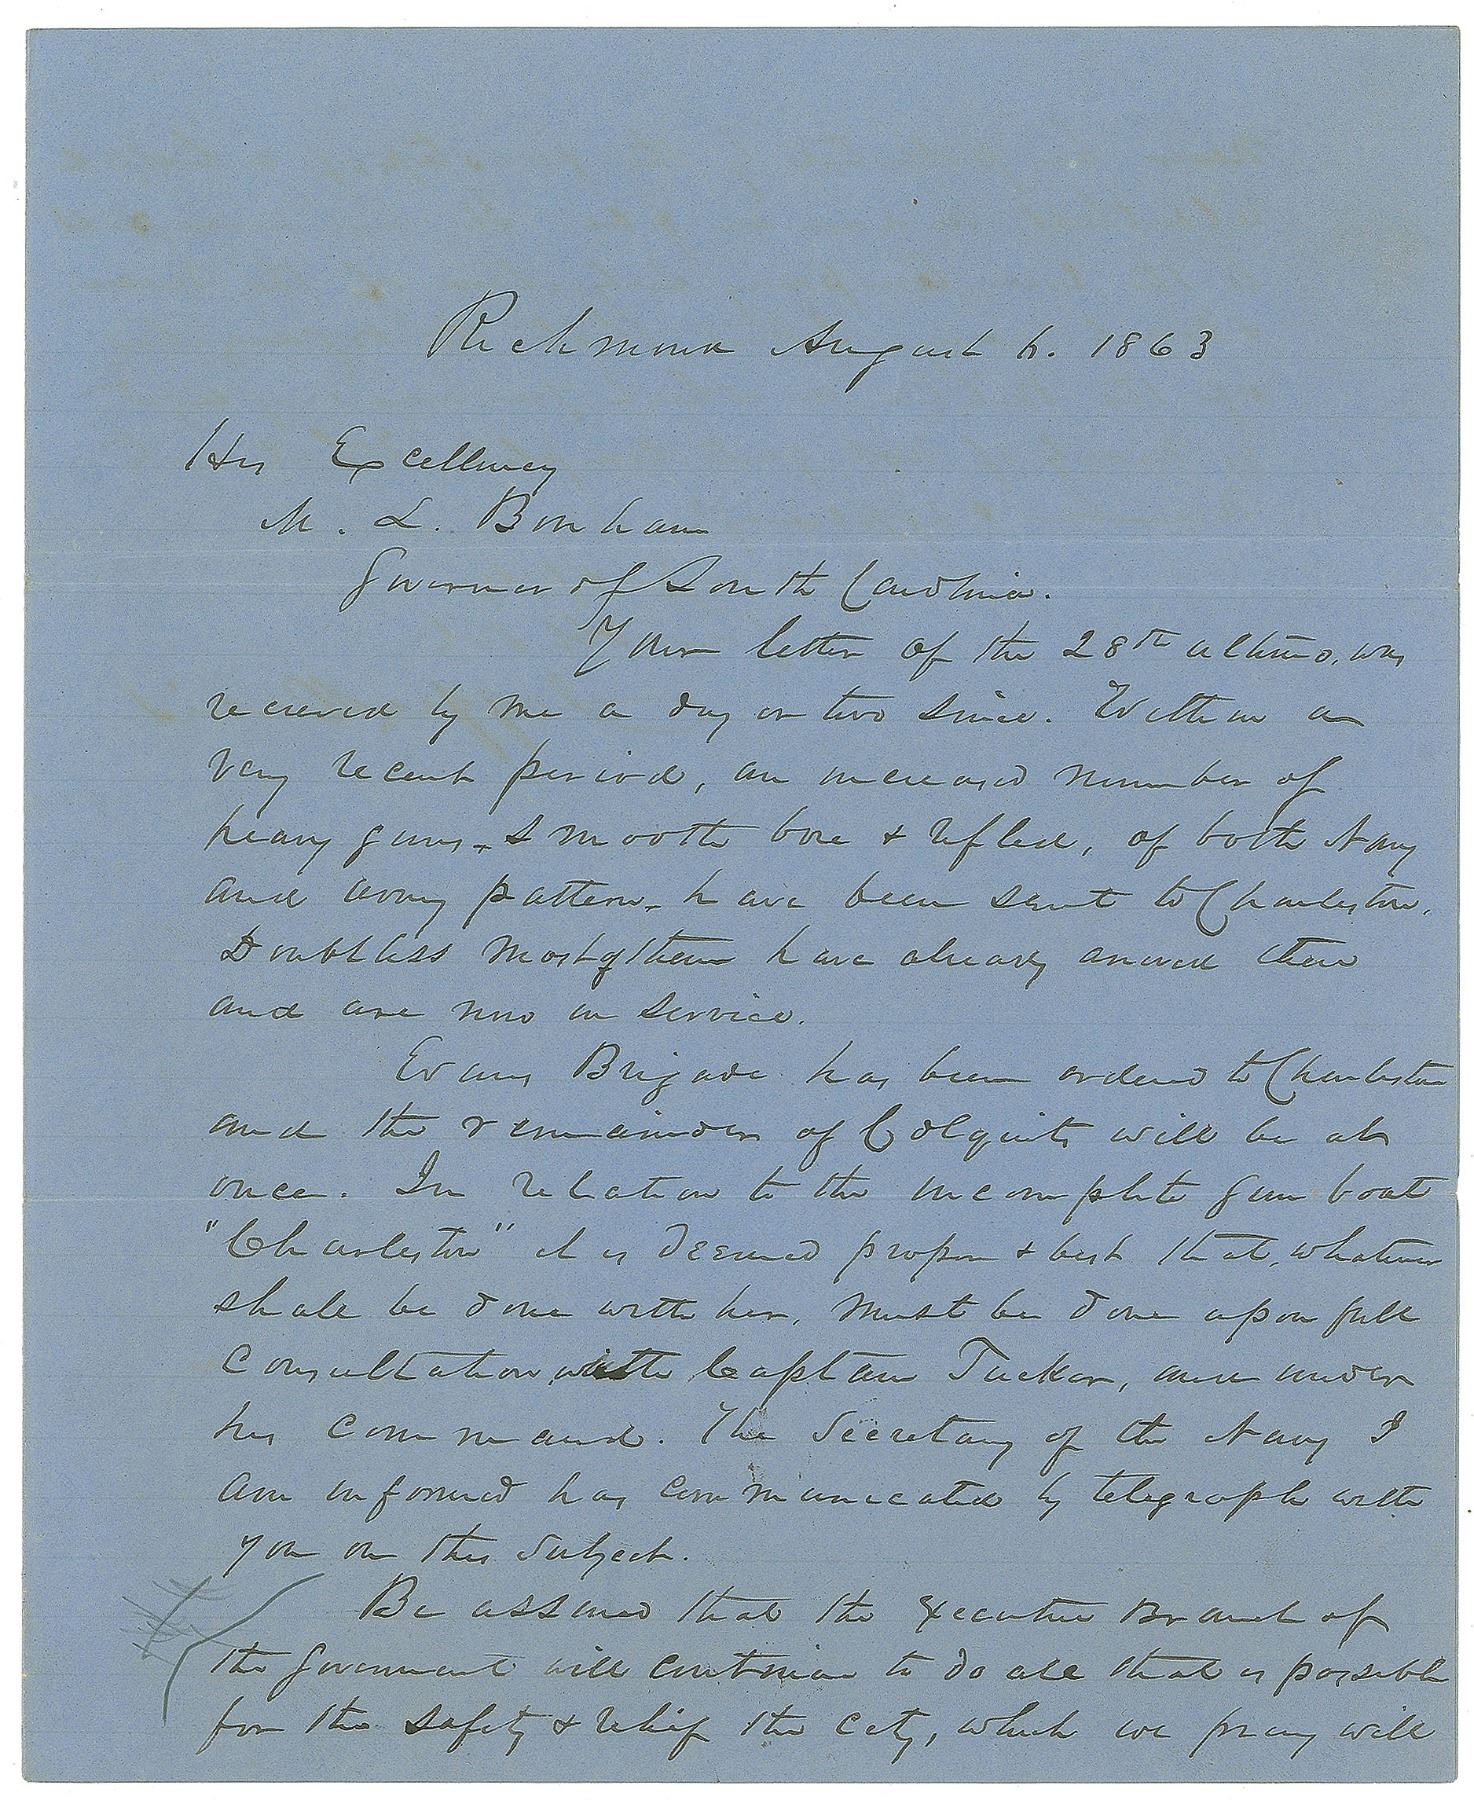 Richmond August 6. 1863
His Excellency
M. L. Bonham
Governor of South Carolina.
Your letter of the 28th ultimo, was
received by me a day or two since. Within a
very recent period, an increased number of
heavy guns - smooth bore & rifled, of both Navy
and army pattern - have been sent to Charleston.
Doubtless most of them have already arrived there
and are now in service.
Evans Brigade has been ordered to Charleston
and the remainder of Colquits will be at
once. In relation to the incomplete gun boat
"Charleston" it is deemed proper & best that, whatever
shall be done with her, must be done upon full
consultation with Captain Tucker, and under
his command. The Secretary of the Navy I
am informed has communicated by telegraph with
you on this subject.
Be assured that the Executive Branch of
the government will continue to do all that is possible
for the safety & relief the city, which we pray will